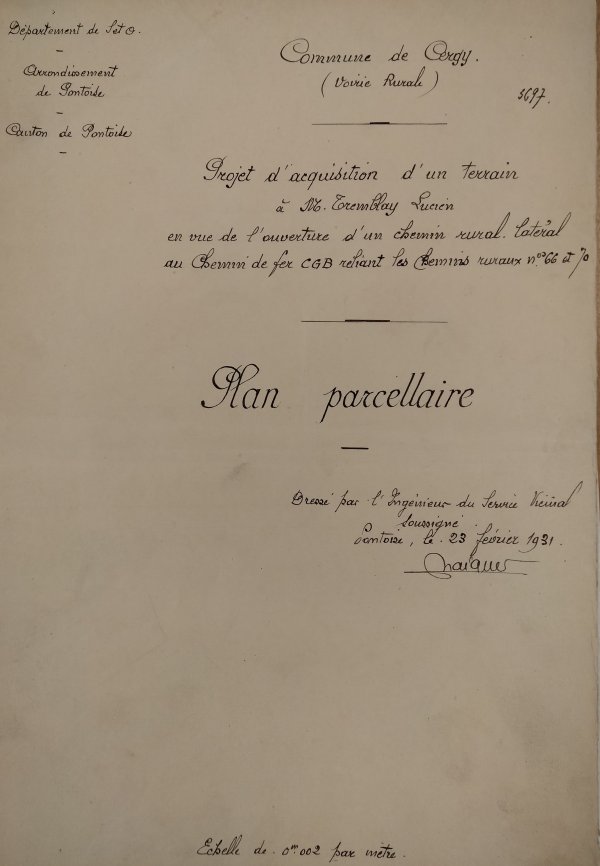 Département de S et O.
Arrondissement
de Pontoise
Canton de Pontoise
Commune de Cergy.
(Voirie Rurale)
3697.
Projet d'acquisition d'un terrain
à M. Tremblay Lucien
en vue de l'ouverture d'un chemin rural latéral
au Chemin de fer CGB reliant les Chemins ruraux nos 66 et 70
Plan parcellaire
Dressé par l'Ingénieur du Service Vicinal
soussigné.
Pontoise, le 23 février 1931.
Echelle de 0m.002 par mètre.